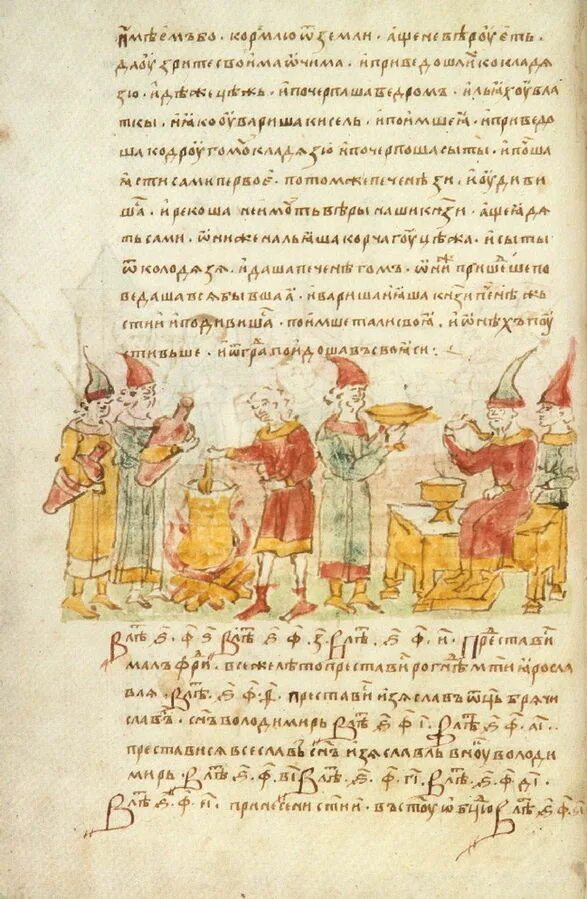 имѣемъ бо кормлю ѿ земли · аще не вѣроуєть ·
да оузрите своима ѡчима · и приведоша ӕ ко кладѧ
зю · идѣже цѣжь · и почерпаша ведромъ · и льӕхоу в ла
ткы · и ӕко оувариша кисель · и поимше ӕ · и приведо
ша к дроугомоу кладѧзю и почерпоша сыты · и поча
ша ӕсти сами первоє · потом же печенѣзи · и оудиви
шасѧ · и рекоша не имоуть вѣры наши кнѧзи · аще не ӕдѧ
ть сами · ѡни же нальӕша корчагоу цѣжа · и сыты
ѿ колодѧзѧ · и даша печенѣгомъ · ѡни же пришедше по
ведаша всѧ бывшаӕ · и вариша ӕша кнѧзи печенѣжь
стии и подивишасѧ · поимше тали своӕ · и ѡнѣхъ поу
стивьше · и ѿ града поидоша въ свояси :
В лѣтѣ · ҂ѕ · ф · ѕ В лѣтѣ · ҂ѕ · ф · з · В лѣтѣ · ҂ѕ · ф · и · Преставис
малъфридь · в се же лѣто преставис рогнѣдь мти ӕросла
влѧ · В лѣтѣ · ҂ѕ · ф · ѳ · преставис изѧславъ ѿць брѧчи
славль · снъ володимирь В лѣтѣ · ҂ѕ · ф · і · В лѣтѣ · ҂ѕ · ф · аі ·
престависѧ всеславъ снъ изѧславль внꙋкъ володи
мирь · В лѣтѣ · ҂ѕ · ф · ві В лѣтѣ · ҂ѕ · ф · гі · В лѣтѣ · ҂ѕ · ф · ді ·
В лѣтѣ · ҂ѕ · ф · еі · принесени стии · въ стоую бцю В лѣтѣ · ҂ѕ · ф ·